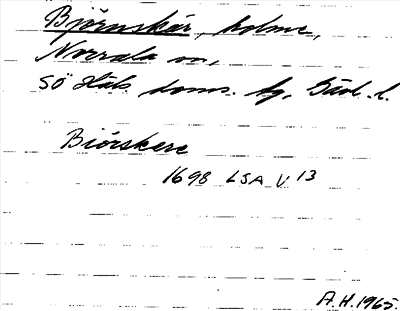 Björnskär, holme,
Norrala sn,
SÖ Häls doms. tg, Gävl. l.
Biörskere
1698 LSA V 13
A.H. 1965.